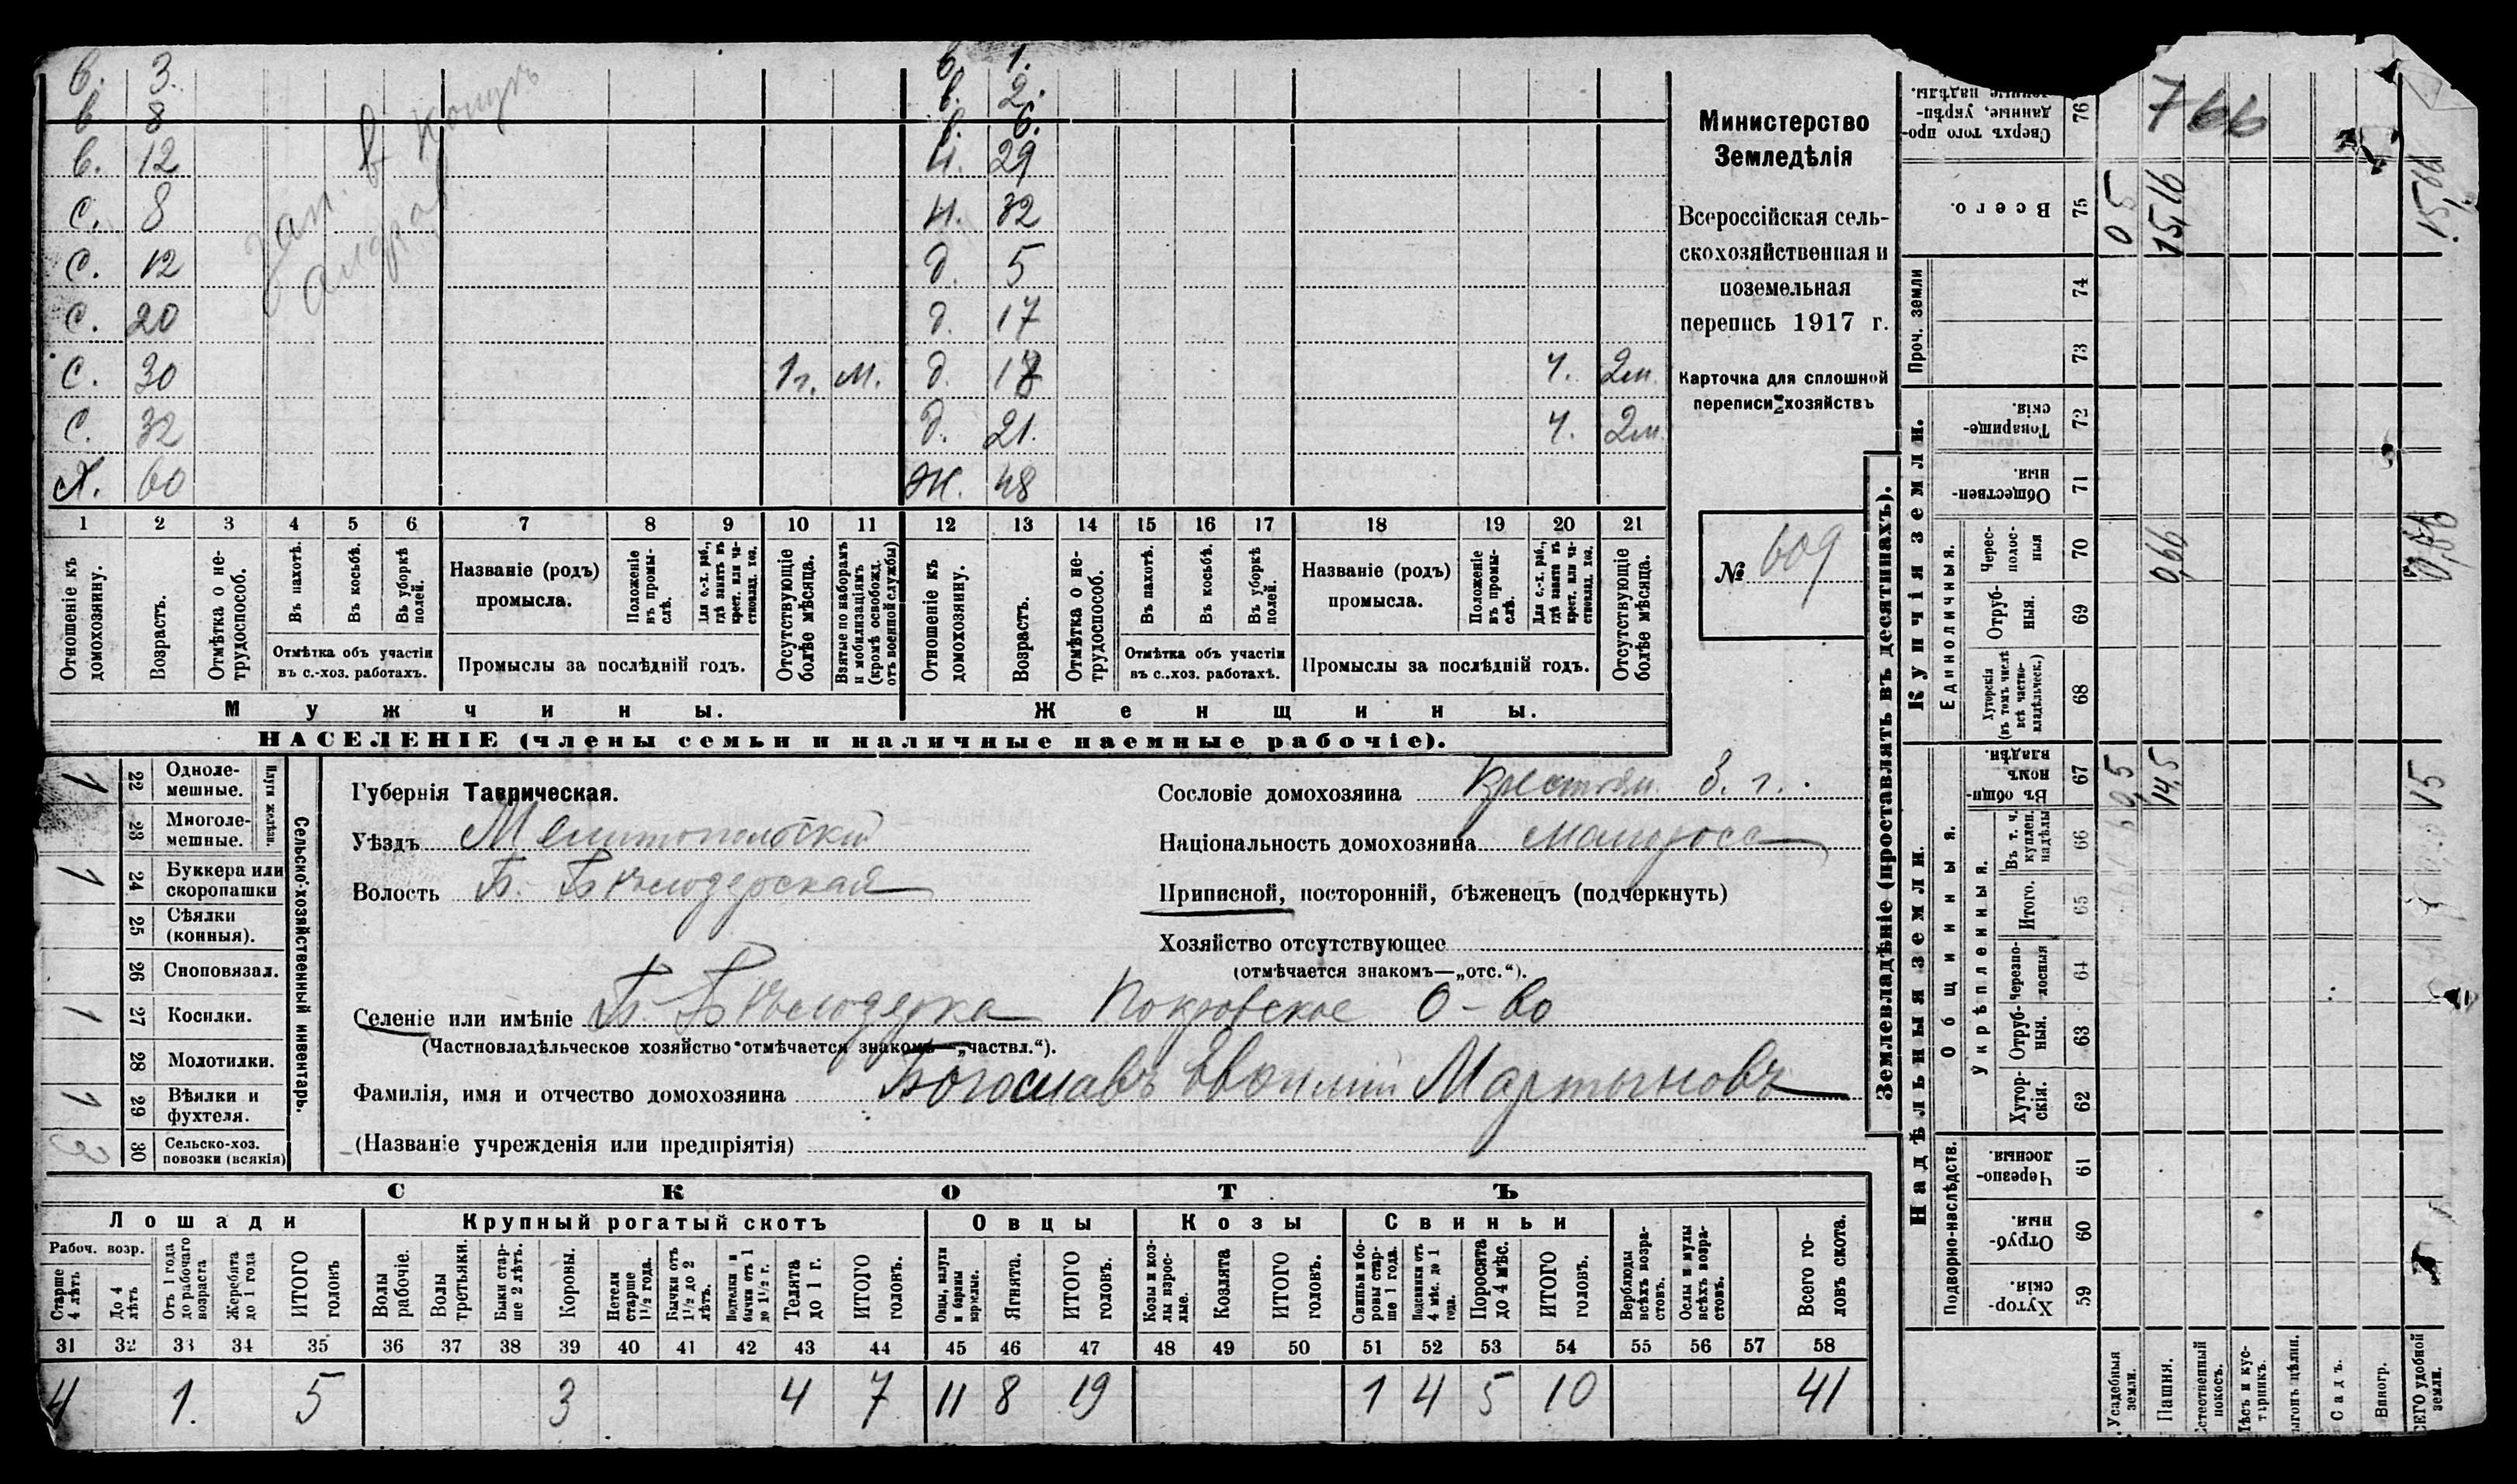 в. 3. в. 1.
в 8 в. 2.
в. 12 в. 6.
Н. 29
с. 8 Н. 32
с. 12 д. 5
с. 20 д. 17
с. 30 1 г. м. д. 18 ч. 2 м.
с. 32 д. 21. ч. 2 м.
Х. 60 Ж. 48
зап. в
1 2 3 4 5 6 7 8 9 10 11 12 13 14 15 16 17 18 19 20 21
Отношеніе къ домохозяину.
Возрастъ.
Отмѣтка о не-трудоспособ.
Въ пахотѣ.
Въ косьбѣ.
Въ уборкѣ полей.
Отмѣтка объ участіи
въ с.-хоз. работахъ.
Названіе (родъ)
промысла.
Положеніе въ промы-слѣ.
Для с.-х. раб., гдѣ занятъ въ крест. или ча-стновлад. хоз.
Промыслы за послѣдній годъ.
Отсутствующіе болѣе мѣсяца.
Взятые по наборамъ и мобилизаціямъ (кромѣ освобожд. отъ военной службы)
Отношеніе къ домохозяину.
Возрастъ.
Отмѣтка о не-трудоспособ.
Въ пахотѣ.
Въ косьбѣ.
Въ уборкѣ полей.
Отмѣтка объ участіи
въ с..хоз. работахѣ.
Названіе (родъ)
промысла.
Положеніе въ промы-слѣ.
Для с.-х. раб., гдѣ занята въ крест. или ча-стновлад. хоз.
Промыслы за послѣдній годъ.
Отсутствующіе болѣе мѣсяца.
Мужчины.
Женщины.
НАСЕЛЕНІЕ (члены семьи и наличные наемные рабочіе).
Министерство
Земледѣлія
Всероссійская сель-
скохозяйственная и
поземельная
перепись 1917 г.
Карточка для сплошной
переписи хозяйствъ
№ 609
1 22 Одноле-мешные.
23 Многоле-мешные.
Плуги желѣзн.
1 24 Буккера или скоропашки
25 Сѣялки (конныя).
26 Сноповязал.
1 27 Косилки.
28 Молотилки.
1 29 Вѣялки и фухтеля.
3 30 Сельско-хоз. повозки (всякія)
Сельско-хозяйственный инвентарь.
Губернія Таврическая.
Уѣздъ Мелитопольскій
Волость Б. Бѣлозерская
Селеніе или имѣніе Б. Бѣлозерка Покровское О-во
(Частновладѣльческое хозяйство отмѣчается знакомъ—„частвл.“).
Фамилія, имя и отчество домохозяина Богославъ Евфимій Мартыновъ
(Названіе учрежденія или предпріятія)
Сословіе домохозяина Крестьян. З. г.
Національность домохозяина малоросс
Приписной, посторонній, бѣженецъ (подчеркнуть)
Хозяйство отсутствующее
(отмѣчается знакомъ—„отс.“).
СКОТЪ
Лошади
Крупный рогатый скотъ
Овцы
Козы
Свиньи
Рабоч. возр.
Старше 4 лѣтъ
До 4 лѣтъ
Отъ 1 года до рабочаго возраста
Жеребята до 1 года
ИТОГО головъ
Волы рабочіе.
Волы третьяки.
Быки стар-ше 2 лѣтъ.
Коровы.
Нетели старше 1½ года.
Бычки отъ 1½ до 2 лѣтъ.
Подтелки и бычки отъ 1 до 1½ г.
Телята до 1 г.
ИТОГО головъ.
Овцы, валухи и бараны взрослые.
Ягнята.
ИТОГО головъ.
Козы и коз-лы взрос-лые.
Козлята
ИТОГО головъ.
Свиньи и бо-ровы стар-ше 1 года.
Подсвинки отъ 4 мѣс. до 1 года.
Поросята до 4 мѣс.
ИТОГО головъ.
Верблюды всѣхъ возра-стовъ.
Ослы и мулы всѣхъ возра-стовъ.
Всего го-ловъ скота.
31 32 33 34 35 36 37 38 39 40 41 42 43 44 45 46 47 48 49 50 51 52 53 54 55 56 57 58
4 1. 5 3 4 7 11 8 19 1 4 5 10 41
Землевладѣніе (проставлять въ десятинахъ).
Надѣльныя земли.
Купчія земли.
Подворно-наслѣдств.
Общинныя.
Укрѣпленныя.
Единоличныя.
Проч. земли
Сверхъ того про-данные, укрѣп-ленные надѣлы. 76 766
Всего. 75 0 5 15,16 15,66
74
73
Товарище-скія. 72
Обществен-ныя. 71
Черес-полос-ныя 70 0,66 0,66
Отруб-ныя. 69
Хуторскія (въ томъ числѣ всѣ частно-владѣльческ.) 68
Въ общин-номъ владѣн. 67 0,5 14,5 15
Въ т. ч. куплен. надѣлы 66
Итого. 65
Черезпо-лосныя 64
Отруб-ныя. 63
Хутор-скія. 62
Черезпо-лосныя. 61
Отруб-ныя. 60
Хутор-скія 59
Усадебныя земли.
Пашня.
Естественный покосъ.
Лѣсъ и кус-тарникъ.
Выгонъ цѣлин.
Садъ.
Виногр.
ВСЕГО удобной земли.